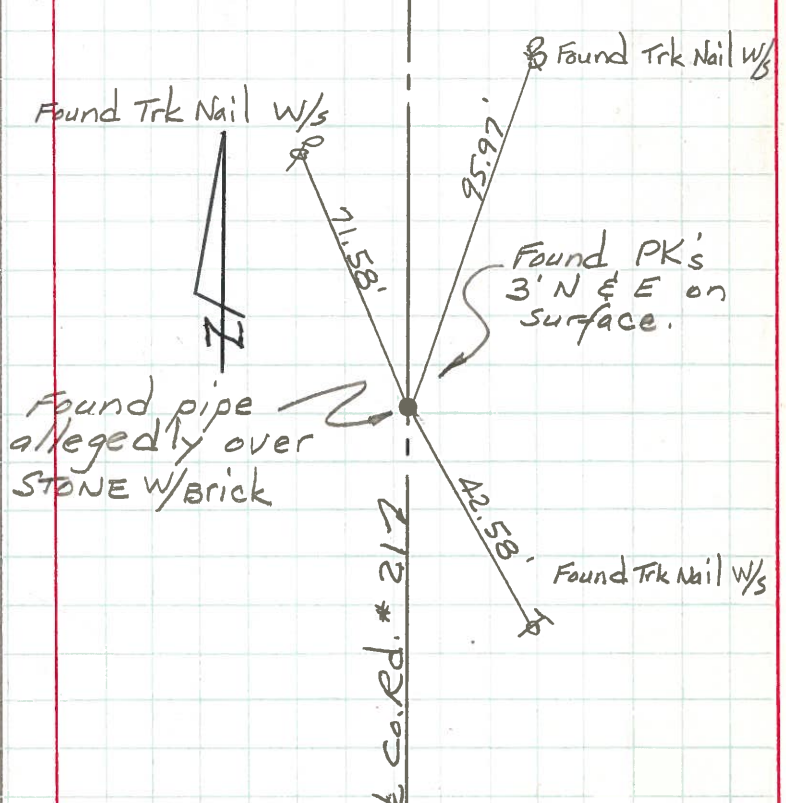 Found Trk Nail W/s
Found Trk Nail W/s
95.97'
71.58'
Found PK's
3' N & E on
surface.
N
Found pipe
allegedly over
STONE W/Brick
42.58'
Found Trk Nail W/s
Co. Rd. # 217